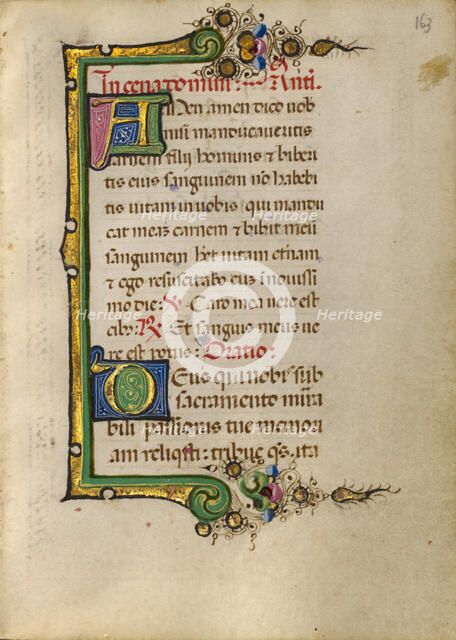 163
In cena domini: Anti.
AMen amen dico uob
nisi manducaueritis
carnem filij hominis & biberi
tis eius sanguinem nō habebi
tis uitam in uobis qui mandu
cat meaz carnem & bibit meū
sanguinem het uitam etnam
& ego resuscitabo eus in nouissi
mo die: V Caro mea uere est
cibus R Et sanguis meus ue
re est potus: Oratio:
DEus qui nobis sub
sacramento mira
bili passionis tue memori
am reliqsti: tribue qs. ita